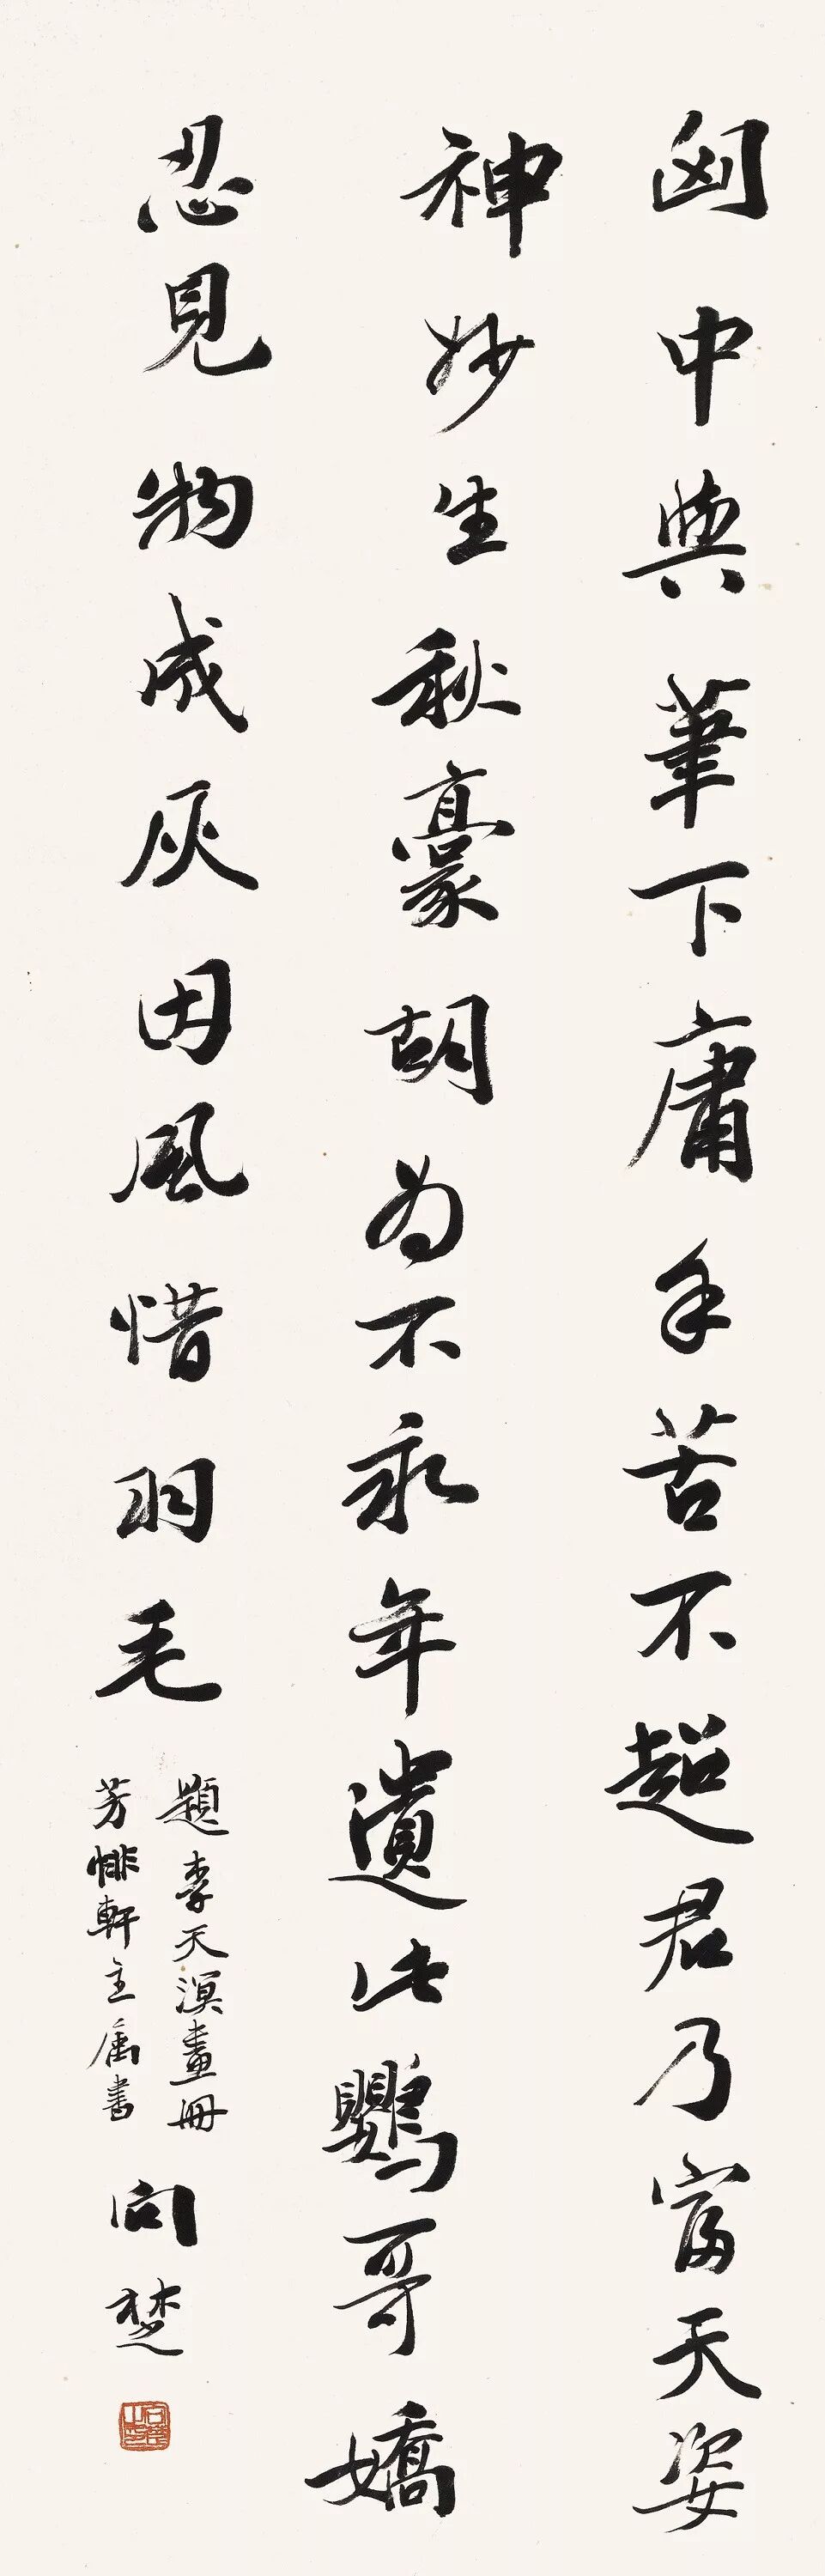 匈中與筆下庸手苦不超君乃富天姿
神妙生秋豪胡為不永年遺此鸚哥嬌
忍見物成灰因風惜羽毛
題李天溟畫冊
芳悱軒主属書
向楚